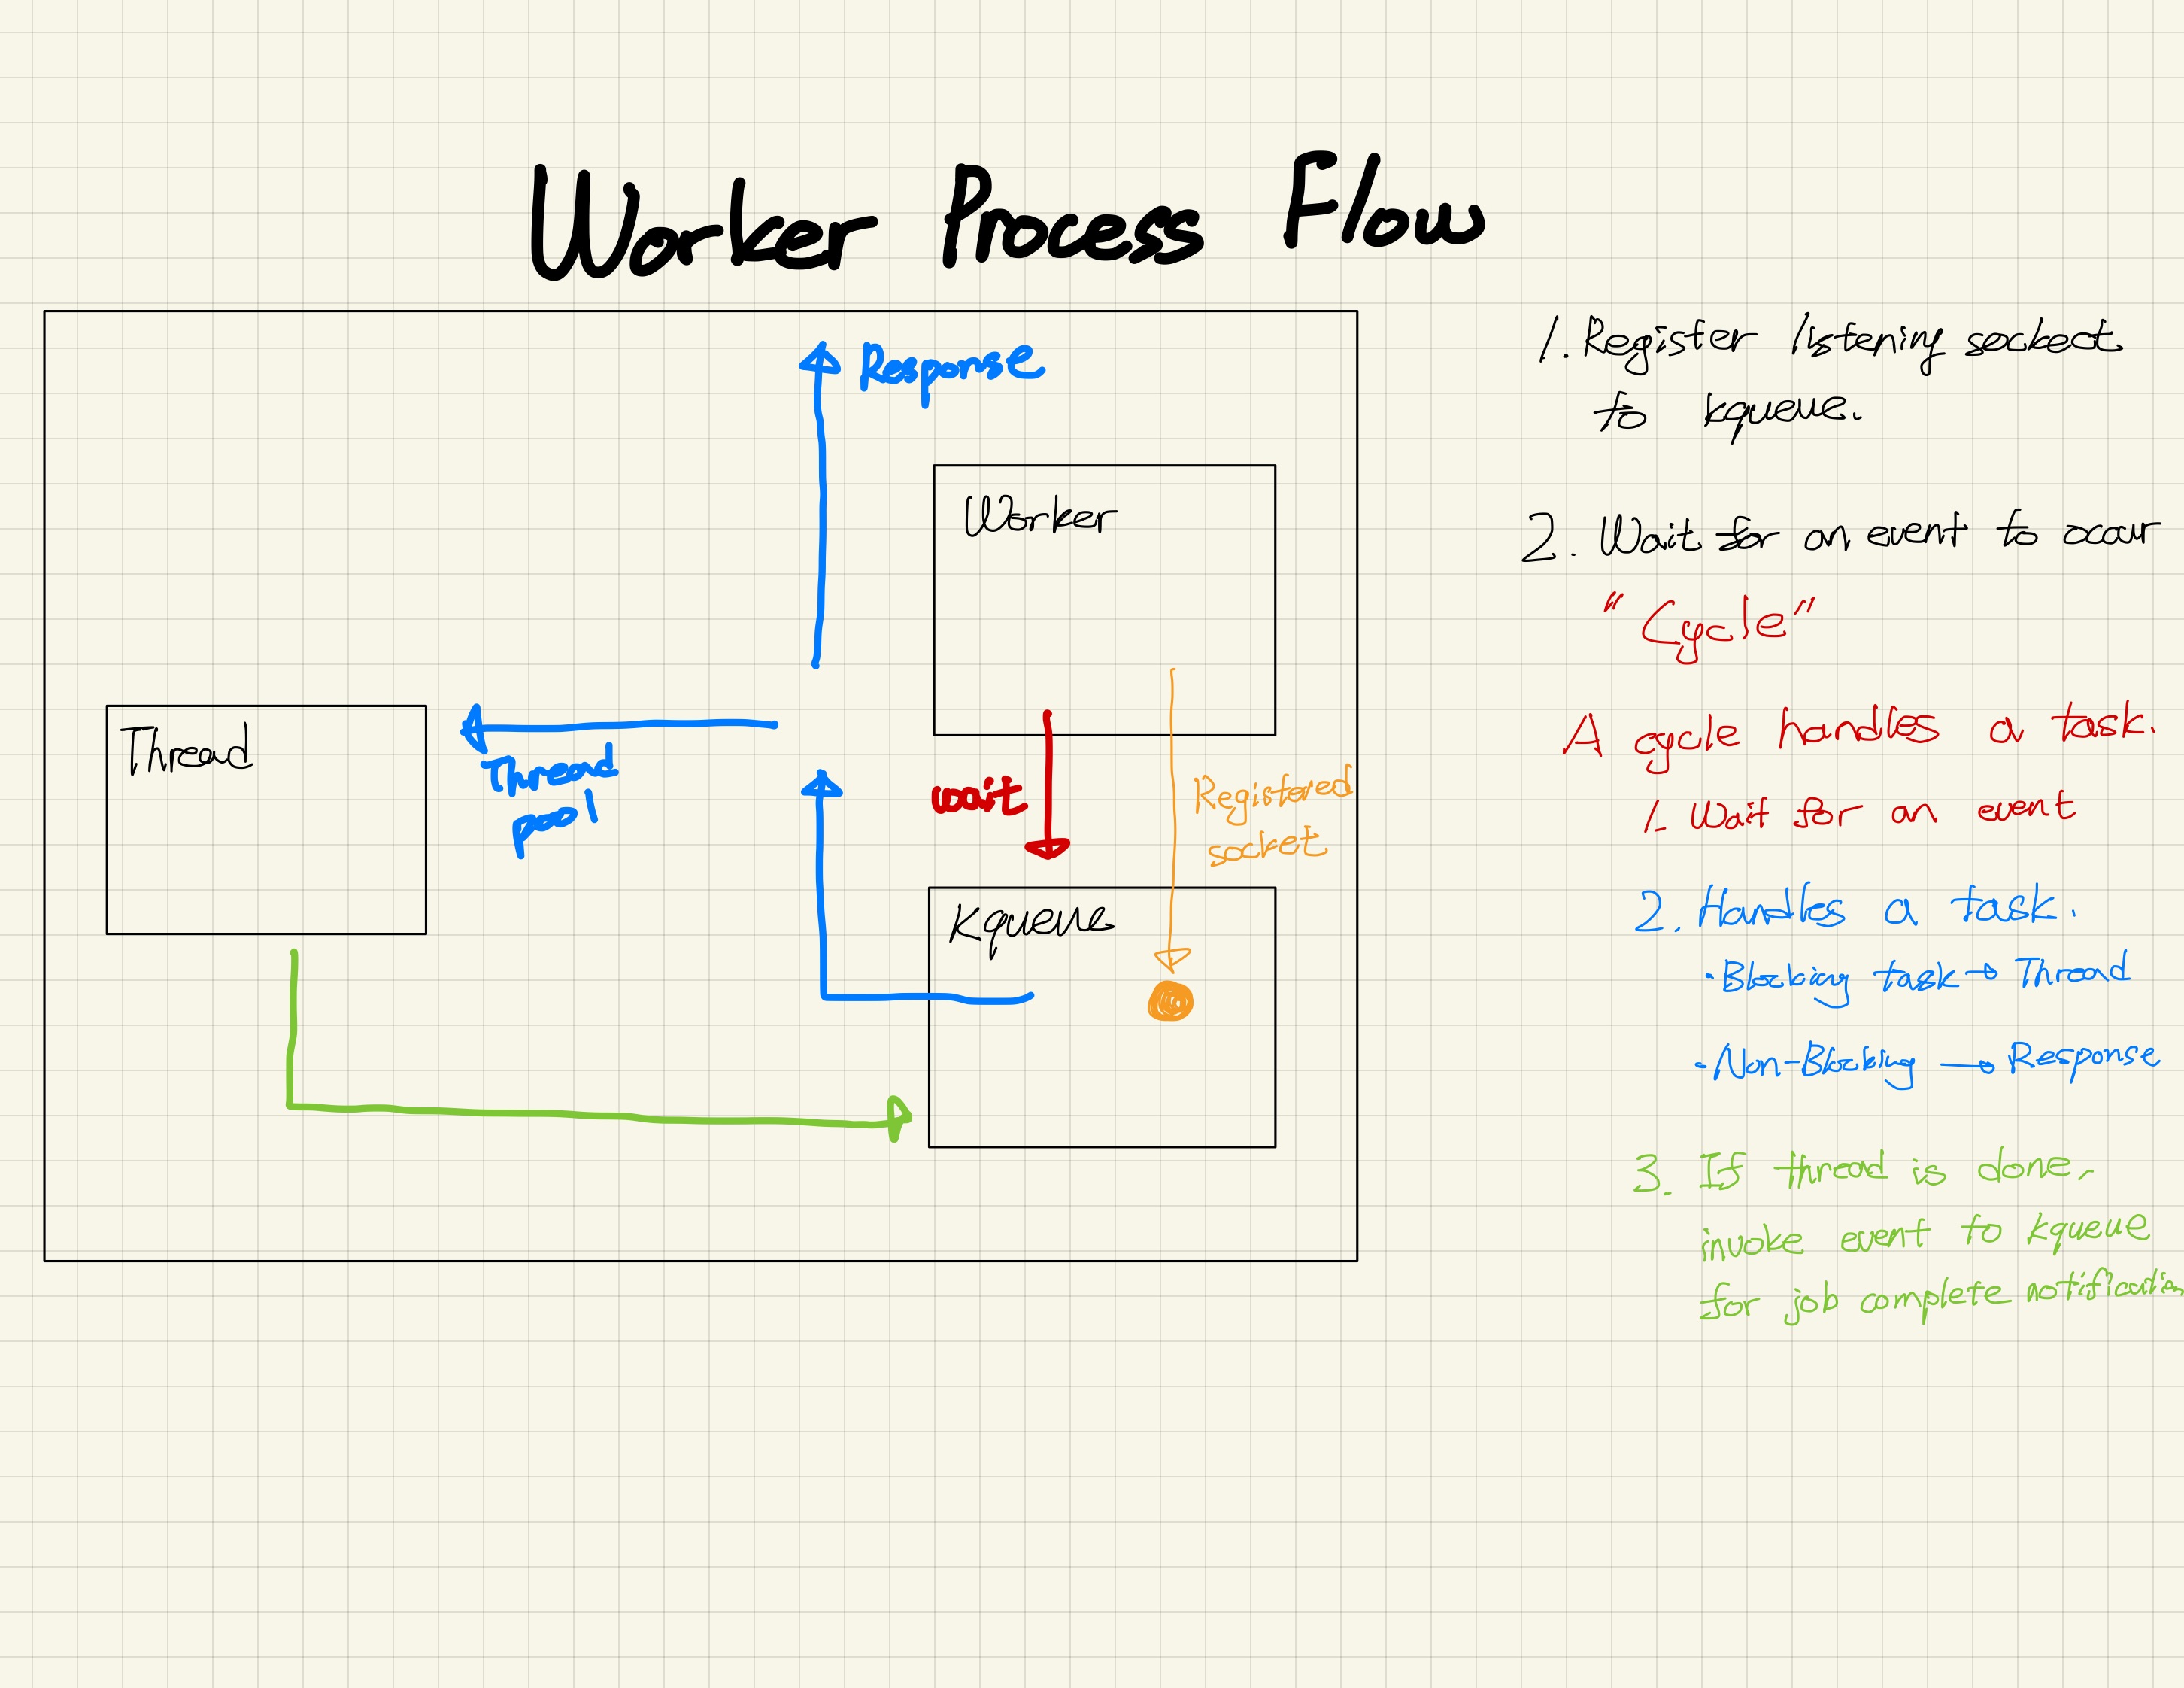 Worker Process Flow
Response
Worker
Thread
Thread
pool
wait
Registered
socket
Kqueue
1. Register listening sockect
to kqueue.
2. Wait for an event to occur
"Cycle"
A cycle handles a task.
1. Wait for an event
2. Handles a task.
• Blocking task → Thread
• Non-Blocking → Response
3. If thread is done,
invoke event to kqueue
for job complete notification